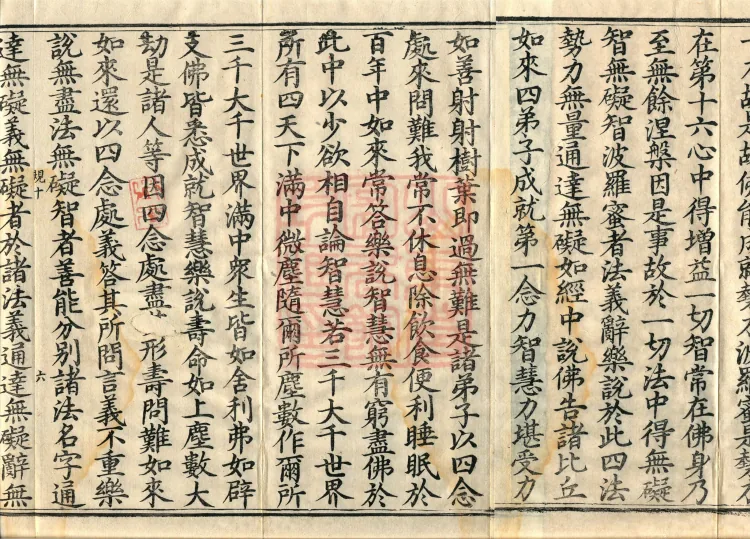 力故是故佛能成就勢 波羅蜜具勢
在第十六心中得增益一切智常在佛身乃
至無餘涅槃因是事故於一切法中得無礙
智無礙智波羅蜜者法義辭樂說於此四法
勢力無量通達無礙如經中說佛告諸比丘
如來四弟子成就第一念力智慧力堪受力
如善射射樹葉即過無難是諸弟子以四念
處來問難我常不休息除飲食便利睡眠於
百年中如來常答樂說智慧無有窮盡佛於
此中以少欲相自論智慧若三千大千世界
所有四天下滿中微塵隨爾所塵數作爾所
三千大千世界滿中眾生皆如舍利弗如辟
支佛皆悉成就智慧樂說壽命如上塵數大
劫是諸人等因四念處盡形壽問難如來
如來還以四念處義答其所問言義不重樂
說無盡法無礙智者善能分別諸法名字通
規十 六
達無礙義無礙者於諸法義通達無礙辭無